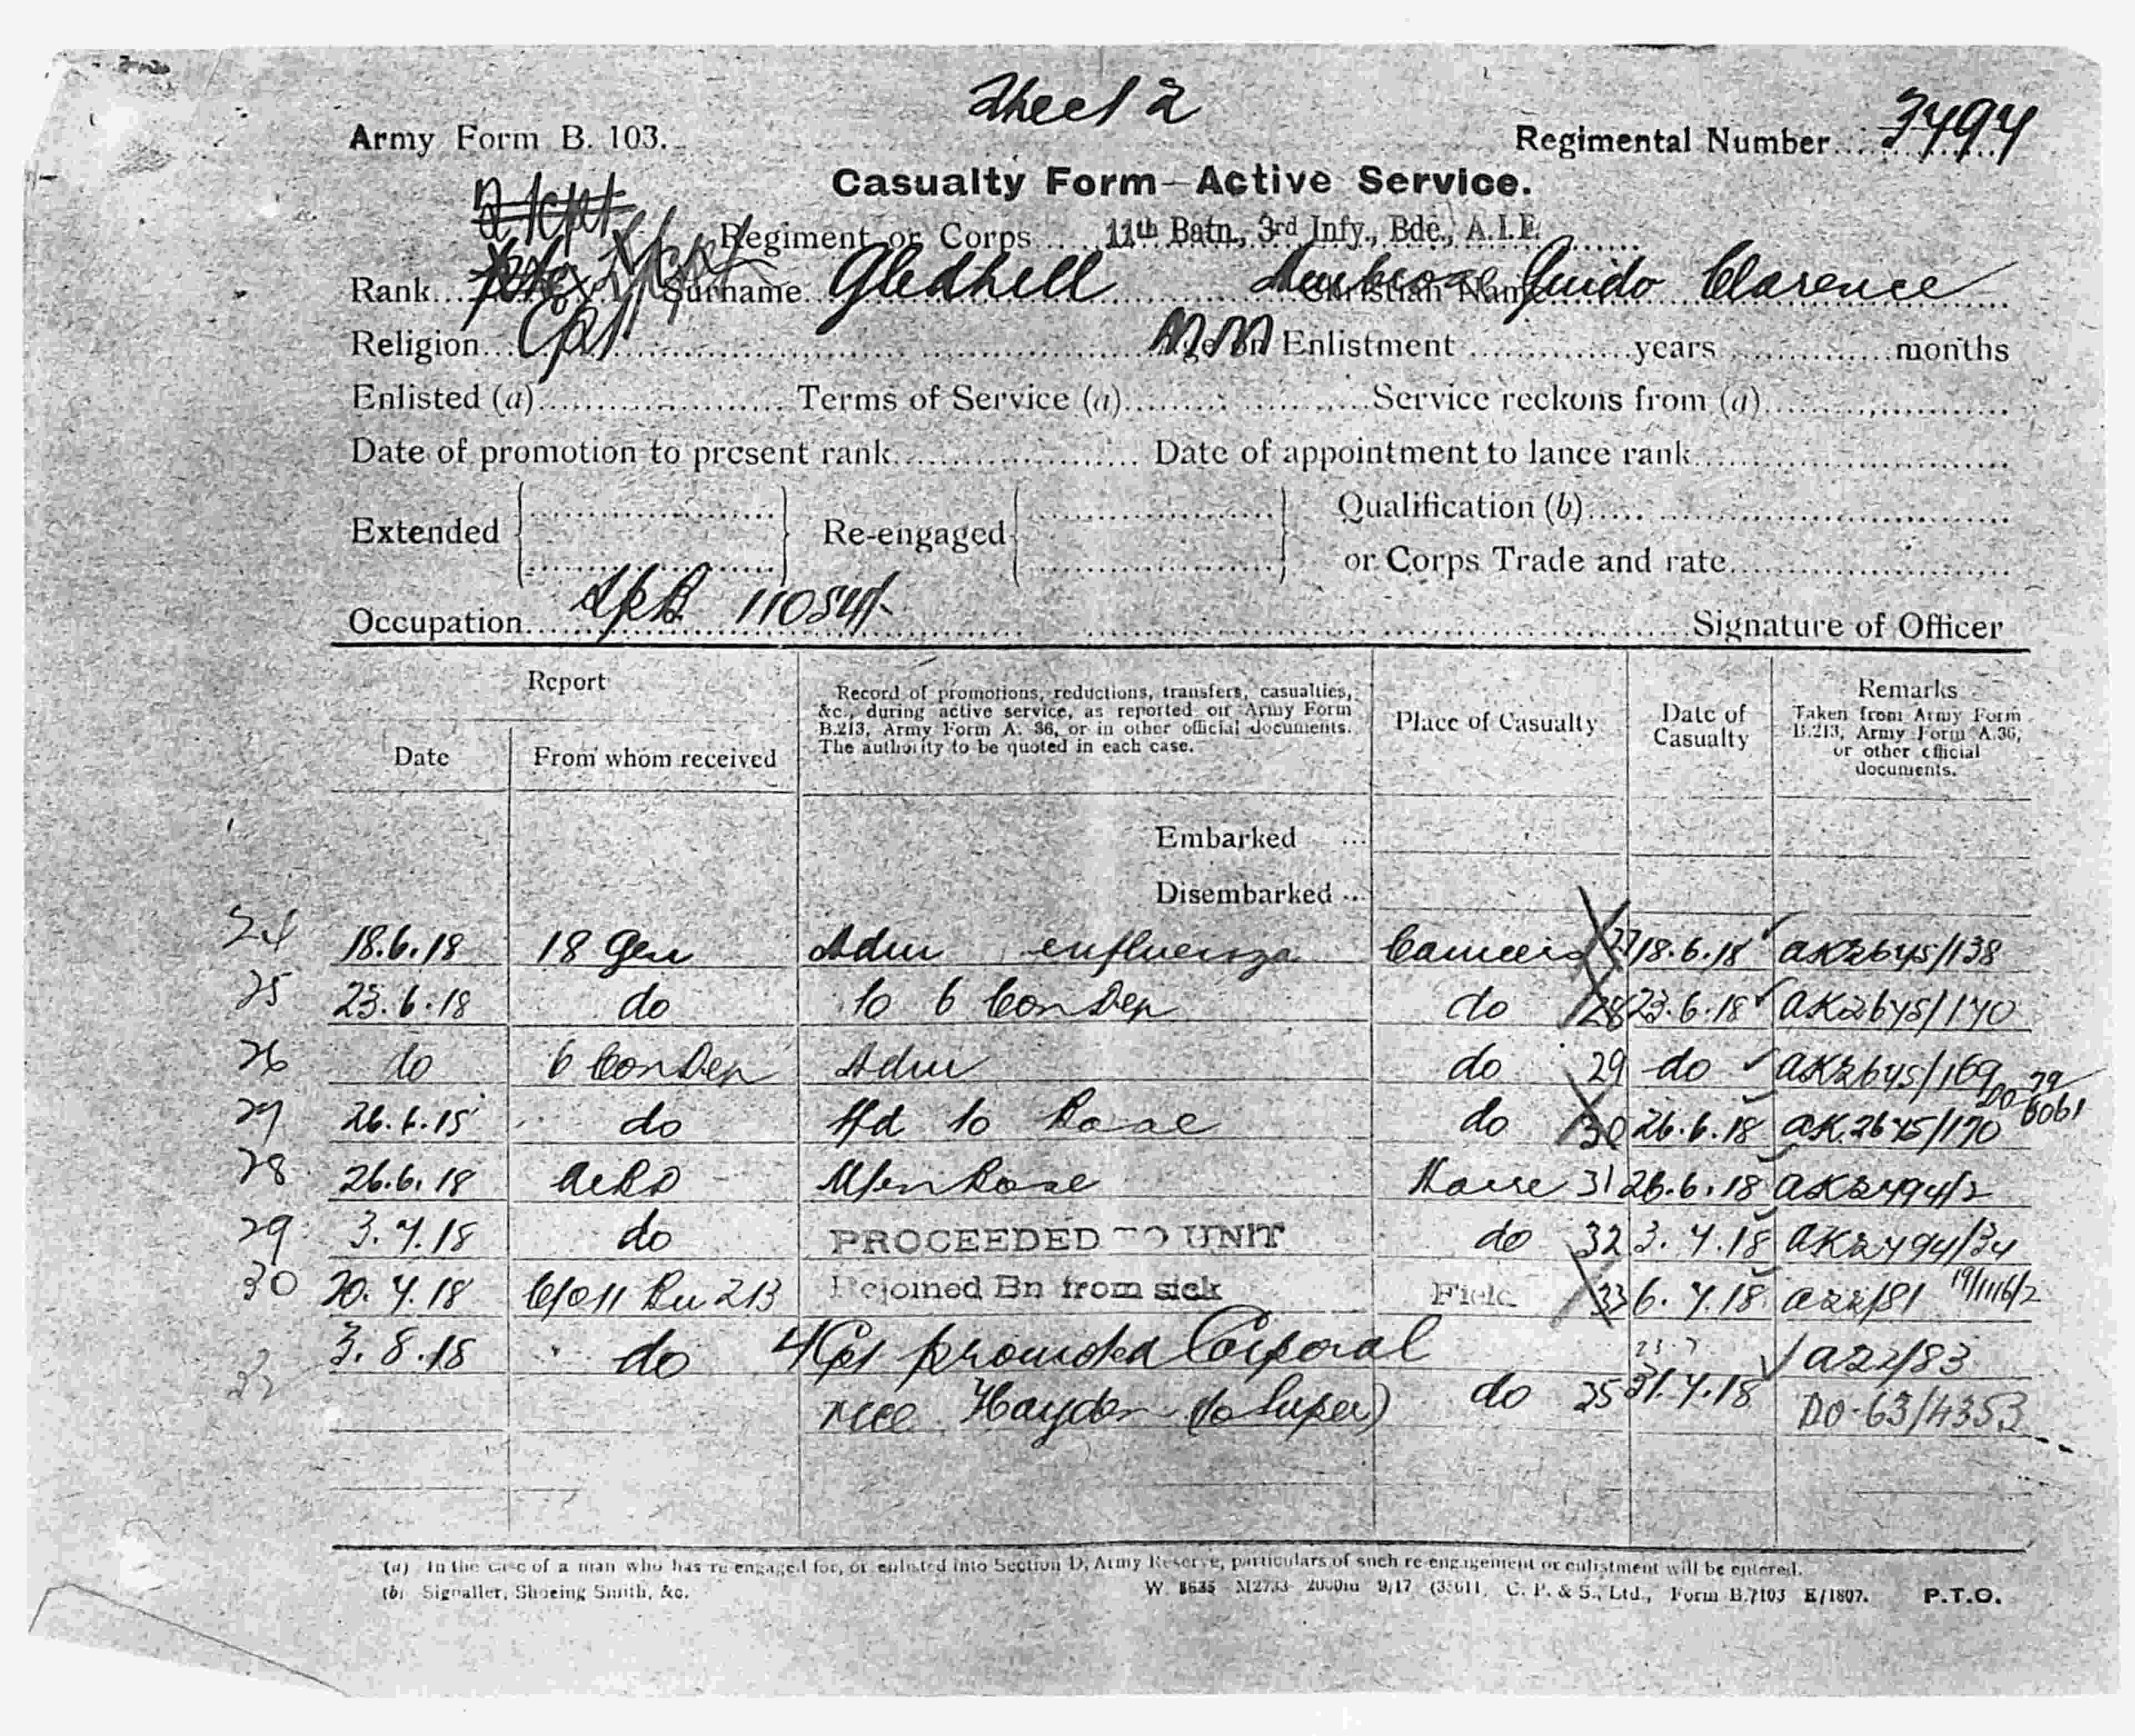 Sheet 2
Army Form B. 103.
Regimental Number 3494
Casualty Form—Active Service.
Regiment or Corps 11th Batn., 3rd Infy., Bde., A.I.F.
Rank Surname Gledhill Christian Name Ambrose Guido Clarence
Religion Cpl MM Age on Enlistment years months
Enlisted (a) Terms of Service (a) Service reckons from (a)
Date of promotion to present rank Date of appointment to lance rank
Extended Re-engaged Qualification (b)
or Corps Trade and rate
Occupation 11054/- Signature of Officer
Report
Date From whom received
Record of promotions, reductions, transfers, casualties, &c., during active service, as reported on Army Form B.213, Army Form A. 36, or in other official documents. The authority to be quoted in each case.
Place of Casualty
Date of Casualty
Remarks
Taken from Army Form B.213, Army Form A.36, or other official documents.
Embarked ...
Disembarked ...
24 18.6.18 18 Gen Adm influenza Camiers 27 18.6.18 AK2645/138
25 23.6.18 do To 6 Con Dep do 28 23.6.18 AK2645/170
26 do 6 Con Dep Adm do 29 do AK2645/169
27 26.6.18 do do 30 26.6.18 AK2645/170
28 26.6.18 31 26.6.18 AK2494/2
29 3.7.18 do PROCEEDED TO UNIT do 32 3.7.18 AK2494/34
30 20.7.18 Rejoined Bn from sick Field 33 6.7.18 A22/81
3.8.18 do L/Cpl promoted Corporal A22/83
vice Hayden (to Super) do 35 31.7.18 DO-63/4353
(a) In the case of a man who has re-engaged for, or enlisted into Section D, Army Reserve, particulars of such re-engagement or enlistment will be entered.
(b) Signaller, Shoeing Smith, &c.
W 8635 M2733 2000m 9/17 C. P. & S., Ltd., Form B./103 E/1807. P.T.O.